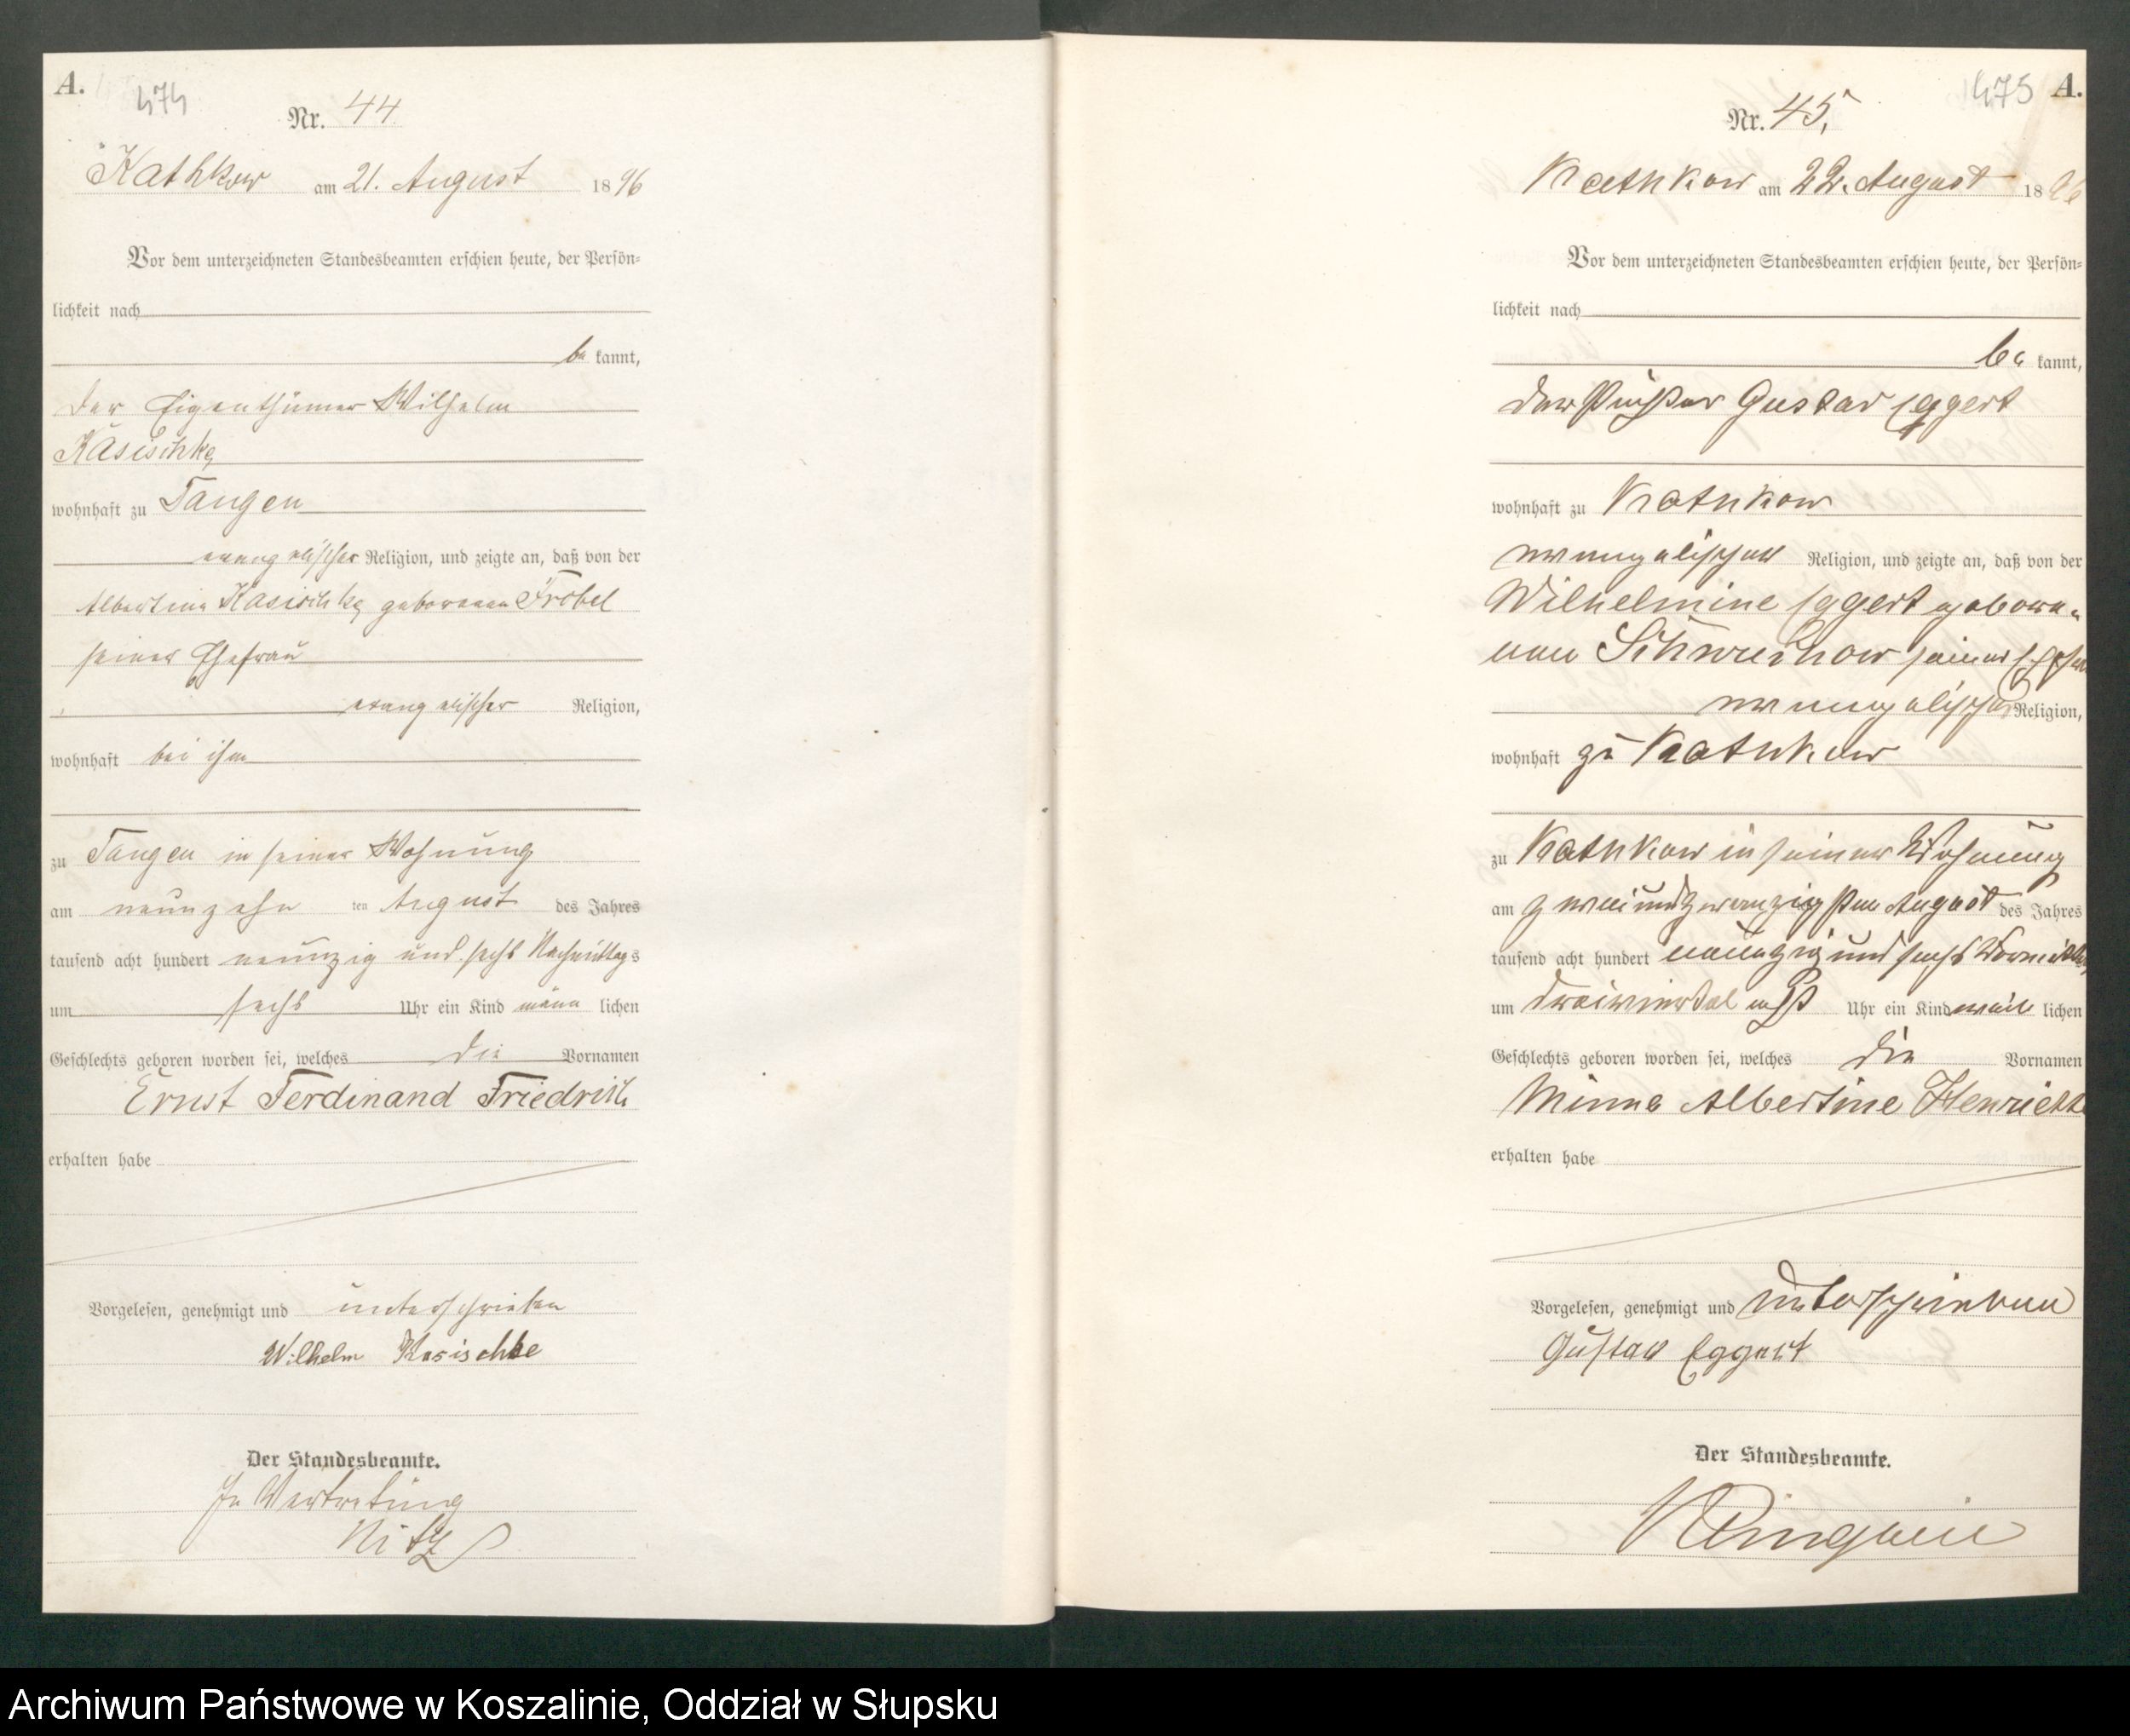 A.
474
Nr. 44
Kathkow am 21. August 1896
Vor dem unterzeichneten Standesbeamten erschien heute, der Persön-
lichkeit nach
be kannt,
der Eigenthümer Wilhelm
Kasischke
wohnhaft zu Tangen
evangelischer Religion, und zeigte an, daß von der
Albertine Kasischke geborenen Fröbel
seiner Ehefrau
evangelischer Religion,
wohnhaft bei ihm
zu Tangen in seiner Wohnung
am neunzehn ten August des Jahres
tausend acht hundert neunzig und sechs Nachmittags
um sechs Uhr ein Kind männ lichen
Geschlechts geboren worden sei, welches die Vornamen
Ernst Ferdinand Friedrich
erhalten habe
Vorgelesen, genehmigt und unterschrieben
Wilhelm Kasischke
Der Standesbeamte.
In Vertretung
Nitz
475 A.
Nr. 45.
Kathkow am 22. August 1896
Vor dem unterzeichneten Standesbeamten erschien heute, der Persön-
lichkeit nach
be kannt,
der Gustav Eggert
wohnhaft zu Kathkow
evangelischer Religion, und zeigte an, daß von der
Wilhelmine Eggert gebore-
nen Schwuchow seiner Ehefrau
evangelischer Religion,
wohnhaft zu Kathkow
zu Kathkow in seiner Wohnung
am zweiundzwanzigsten August des Jahres
tausend acht hundert neunzig und sechs Vormittags
um dreiviertel Uhr ein Kind weib lichen
Geschlechts geboren worden sei, welches die Vornamen
Minna Albertine Henriette
erhalten habe
Vorgelesen, genehmigt und unterschrieben
Gustav Eggert
Der Standesbeamte.
Archiwum Państwowe w Koszalinie, Oddział w Słupsku